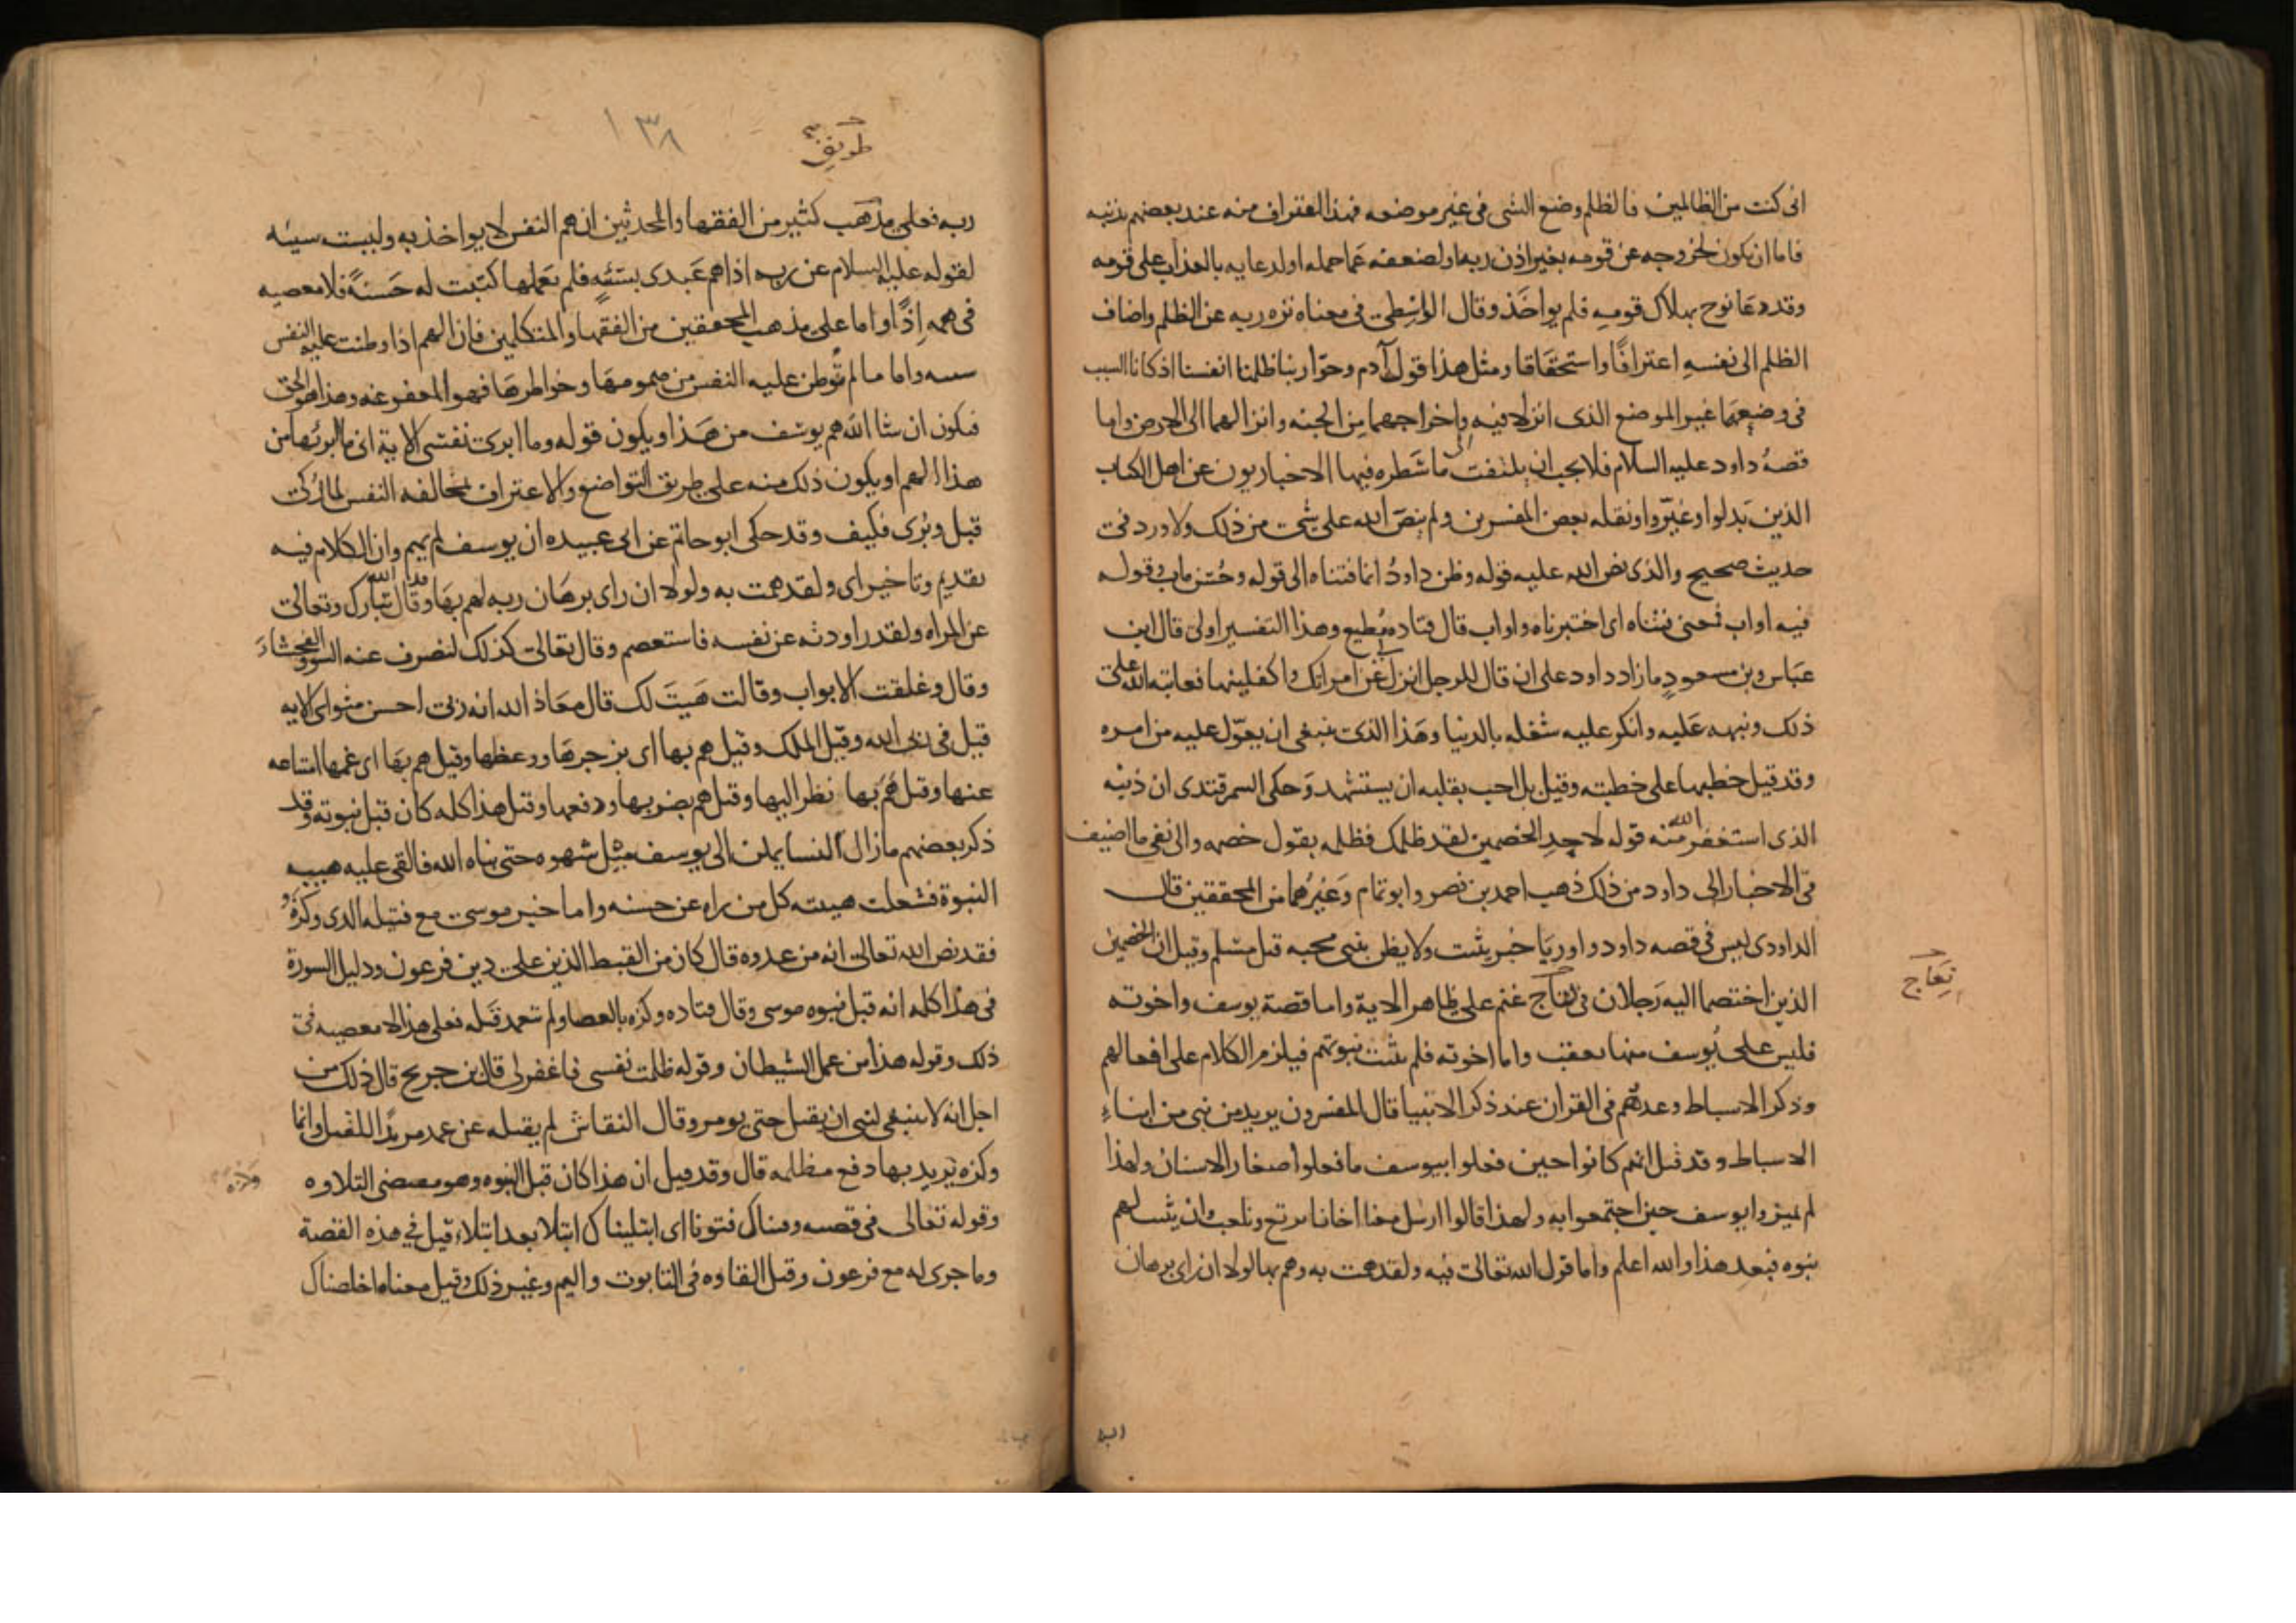 انى كنت من الظالمين فالظلم وضع الشى فى غير موضعه فهذا اعتراف منه عند بعضهم بذنبه
فاما ان يكون لخروجه عن قومه بغير اذن ربه او لضعفه عما حمله او لدعايه بالعذاب على قومه
وقد دعا نوح بهلاك قومه فلم يواخذ وقال الواسطى فى معناه نزه ربه عن الظلم واضاف
الظلم الى نفسه اعترافًا واستحقاقا ومثل هذا قول آدم وحوّا ربنا ظلمنا انفسنا اذ كانا السبب
فى وضعهما غير الموضع الذى انزلا فيه واخراجهما من الجنه وانزالهما الى الارض واما
قصهُ داود عليه السلام فلا يجب ان يلتفت الى ما سَطره فيها الاخباريون عن اهل الكتاب
الذين بَدلوا وغيّروا ونقله بعض المفسرين ولم ينصّ الله على شى من ذلك ولا ورد فى
حديث صحيح والذى نص الله عليه قوله وظن داودُ انما فتناه الى قوله وحُسن ماب وقوله
فيه اواب فمعنى فتناه اى اختبرناه واواب قال قتاده مُطيع وهذا التفسير اولى قال ابن
عباس وبن مسعودٍ ما زاد داود على ان قال للرجل انزل لى عن امراتك واكفلنيها فعاتبه الله على
ذلك ونبهه عَليه وانكر عليه شغله بالدنيا وهَذا الذى ينبغى ان يعوّل عليه من امره
وقد قيل خطبها على خطبته وقيل بل احب بقلبه ان يستشهد وَحكى السمرقندى ان ذنبه
الذى استغفر الله منه قوله لاحدِ الخصمين لقد ظلمك فظلمه بقول خصمه والى نفى ما اضيف
فى الاخبار الى داود من ذلك ذهب احمد بن نصر وابو تمام وَغيرُهما من المحققين قال
الداودى ليس فى قصه داود واوريَا خبر يثبت ولا يظن بنبى محبه قتل مسلم وقيل ان الخصمين
الذين اختصما اليه رَجلان فى نعاج غنم على ظاهر الاية واما قصة يوسف واخوته
نِعَاج
فليس على يُوسف منها تعقب واما اخوته فلم تثبت نبوتهم فيلزم الكلام على افعالهم
وذكر الاسباط وعدهُم فى القران عند ذكر الانبيا قال المفسرون يريد من نبى من ابناءِ
الاسباط وقد قيل انهم كانوا حين فعلوا بيوسف ما فعلوا صغار الاسنان ولهذا
لم يميزوا يوسف حين اجتمعوا به ولهذا قالوا ارسل معنا اخانا نرتع ونلعب وان ثبت لهم
نبوه فبعد هذا والله اعلم واما قول الله تعالى فيه ولقد همت به وهم بها لولا ان راى برهان
١٣٨
ربه فعلى مذهَب كثير من الفقها والمحدثين ان هم النفس لا يواخذ به وليست سيئه
لقوله عليه السلام عن ربه اذا هم عَبدى بسَيئهٍ فلم يَعملها كتبت له حَسنةً فلا معصيه
فى همه اِذًا واما على مذهب المحققين من الفقها والمتكلمين فان الهم اذا وطنت عليه النفس
سيئه واما ما لم تُوطن عليه النفس من همومهَا وخواطرهَا فهو المعفو عنه وهذا هو الحق
فيكون ان شا الله هم يوسف من هَذا ويكون قوله وما ابرى نفسى الاية اى ما ابرئها من
هذا الهم او يكون ذلك منه على طريق التواضع والاعتراف بمخالفه النفس لما زكى
قبل وبُرى فكيف وقد حكى ابو حاتم عن ابى عبيده ان يوسف لم يهم وان الكلام فيه
تقديم وتاخير اى ولقد همت به ولولا ان راى برهَان ربه لهم بهَا وقد قال الله تبارك وتعالى
عن المراه ولقد راودته عن نفسه فاستعصم وقال تعالى كذلك لنصرف عنه السوو الفحشاءَ
وقال وغلقت الابواب وقالت هَيتَ لك قال معَاذ الله انه ربى احسن مثواى الايه
قيل فى ربى الله وقيل الملك وقيل هم بها اى بزجرهَا ووعظها وقيل هم بهَا اى غمها امتناعه
عنها وقيل هَم بها نظر اليها وقيل هم بضربها ودفعها وقيل هذا كله كان قبل نبوته وقد
ذكر بعضهم ما زال النسا يملن الى يوسف ميل شهوه حتى نباه الله فالقى عليه هيبه
النبوة فشغلت هيبته كل من راه عن حسنه واما خبر موسى مع قتيله الذى وكزهُ
فقد نص الله تعالى انه من عدوه قال كان من القبط الذين على دين فرعون ودليل السورة
فى هذا كله انه قبل نبوه موسى وقال قتاده وكزه بالعصا ولم يتعمد قَتله فعلى هذا لا معصيه فى
ذلك وقوله هذا من عمل الشيطان وقوله ظلمت نفسى فاغفر لى قال بن جريج قال ذلك من
اجل انه لا ينبغى لنبى ان يقتل حتى يومر وقال النقاش لم يقتله عن عمد مريدًا للقتل وانما
وكزه يَريد بها دفع مظلمه قال وقد قيل ان هذا كان قبل النبوه وهو مقتضى التلاوه
وقوله تعالى فى قصته وفتناك فتونا اى ابتليناك ابتلا بعد ابتلاءٍ قيل فى هذه القصة
وما جرى له مع فرعون وقيل القاوه فى التابوت واليم وغير ذلك وقيل معناه اخلصناك